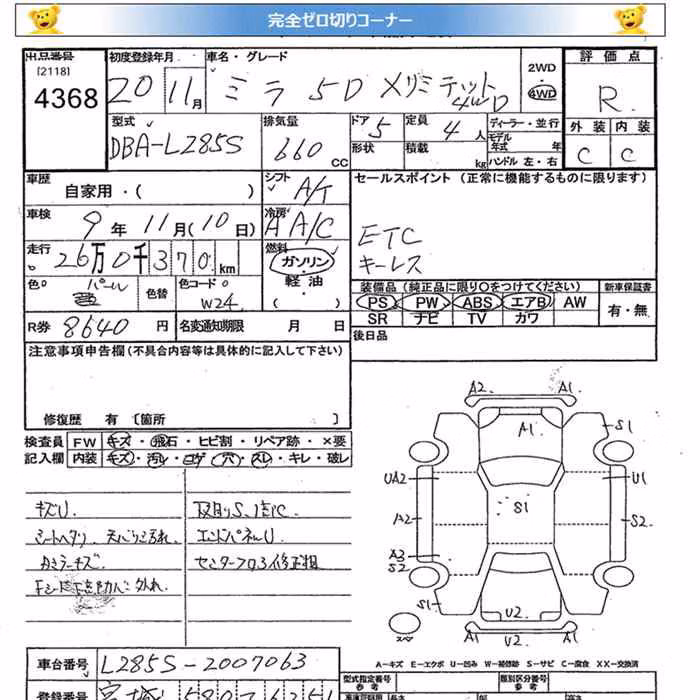 完全ゼロ切りコーナー
出品番号 初度登録年月 車名・グレード 評価点
[2118]
4368 20 11月 ミラ 5D メモリミテット 4WD 2WD 4WD R
型式 排気量 ドア 定員 ディーラー・並行 外装 内装
DBA-L285S 660 CC 5 4人 モデル年式 年 C C
形状 積載 kg ハンドル 左・右
車歴 シフト セールスポイント (正常に機能するものに限ります)
自家用・( ) A/T
車検 9年 11月(10日) 冷房 AA/C
ETC
キーレス
走行 26万0千370km 燃料 ガソリン・軽油・( )
色 パール 色替 色コード W24
装備品 (純正品に限り○をつけてください) 新車保証書
PS PW ABS エアB AW 有・無
SR ナビ TV カワ
R券 8640円 名変通知期限 月 日
後日品
注意事項申告欄(不具合内容等は具体的に記入して下さい)
修復歴 有 [箇所 ]
検査員 FW キズ・飛石・ヒビ割・リペア跡・×要
記入欄 内装 キズ・汚レ・コゲ・穴・スレ・キレ・破レ
キズU.
シートヘタリ
エンドパネルU
A2 A1
A1 S1
UA2 U1
A2 S1 S2
A3
S2
S1 U2
V2 U2
A-キズ E-エクボ U-凹み W-補修跡 S-サビ C-腐食 XX-交換済
車台番号 L285S-2007063
型式指定番号 参考 類別区分番号 参考
登録番号 宮城 580